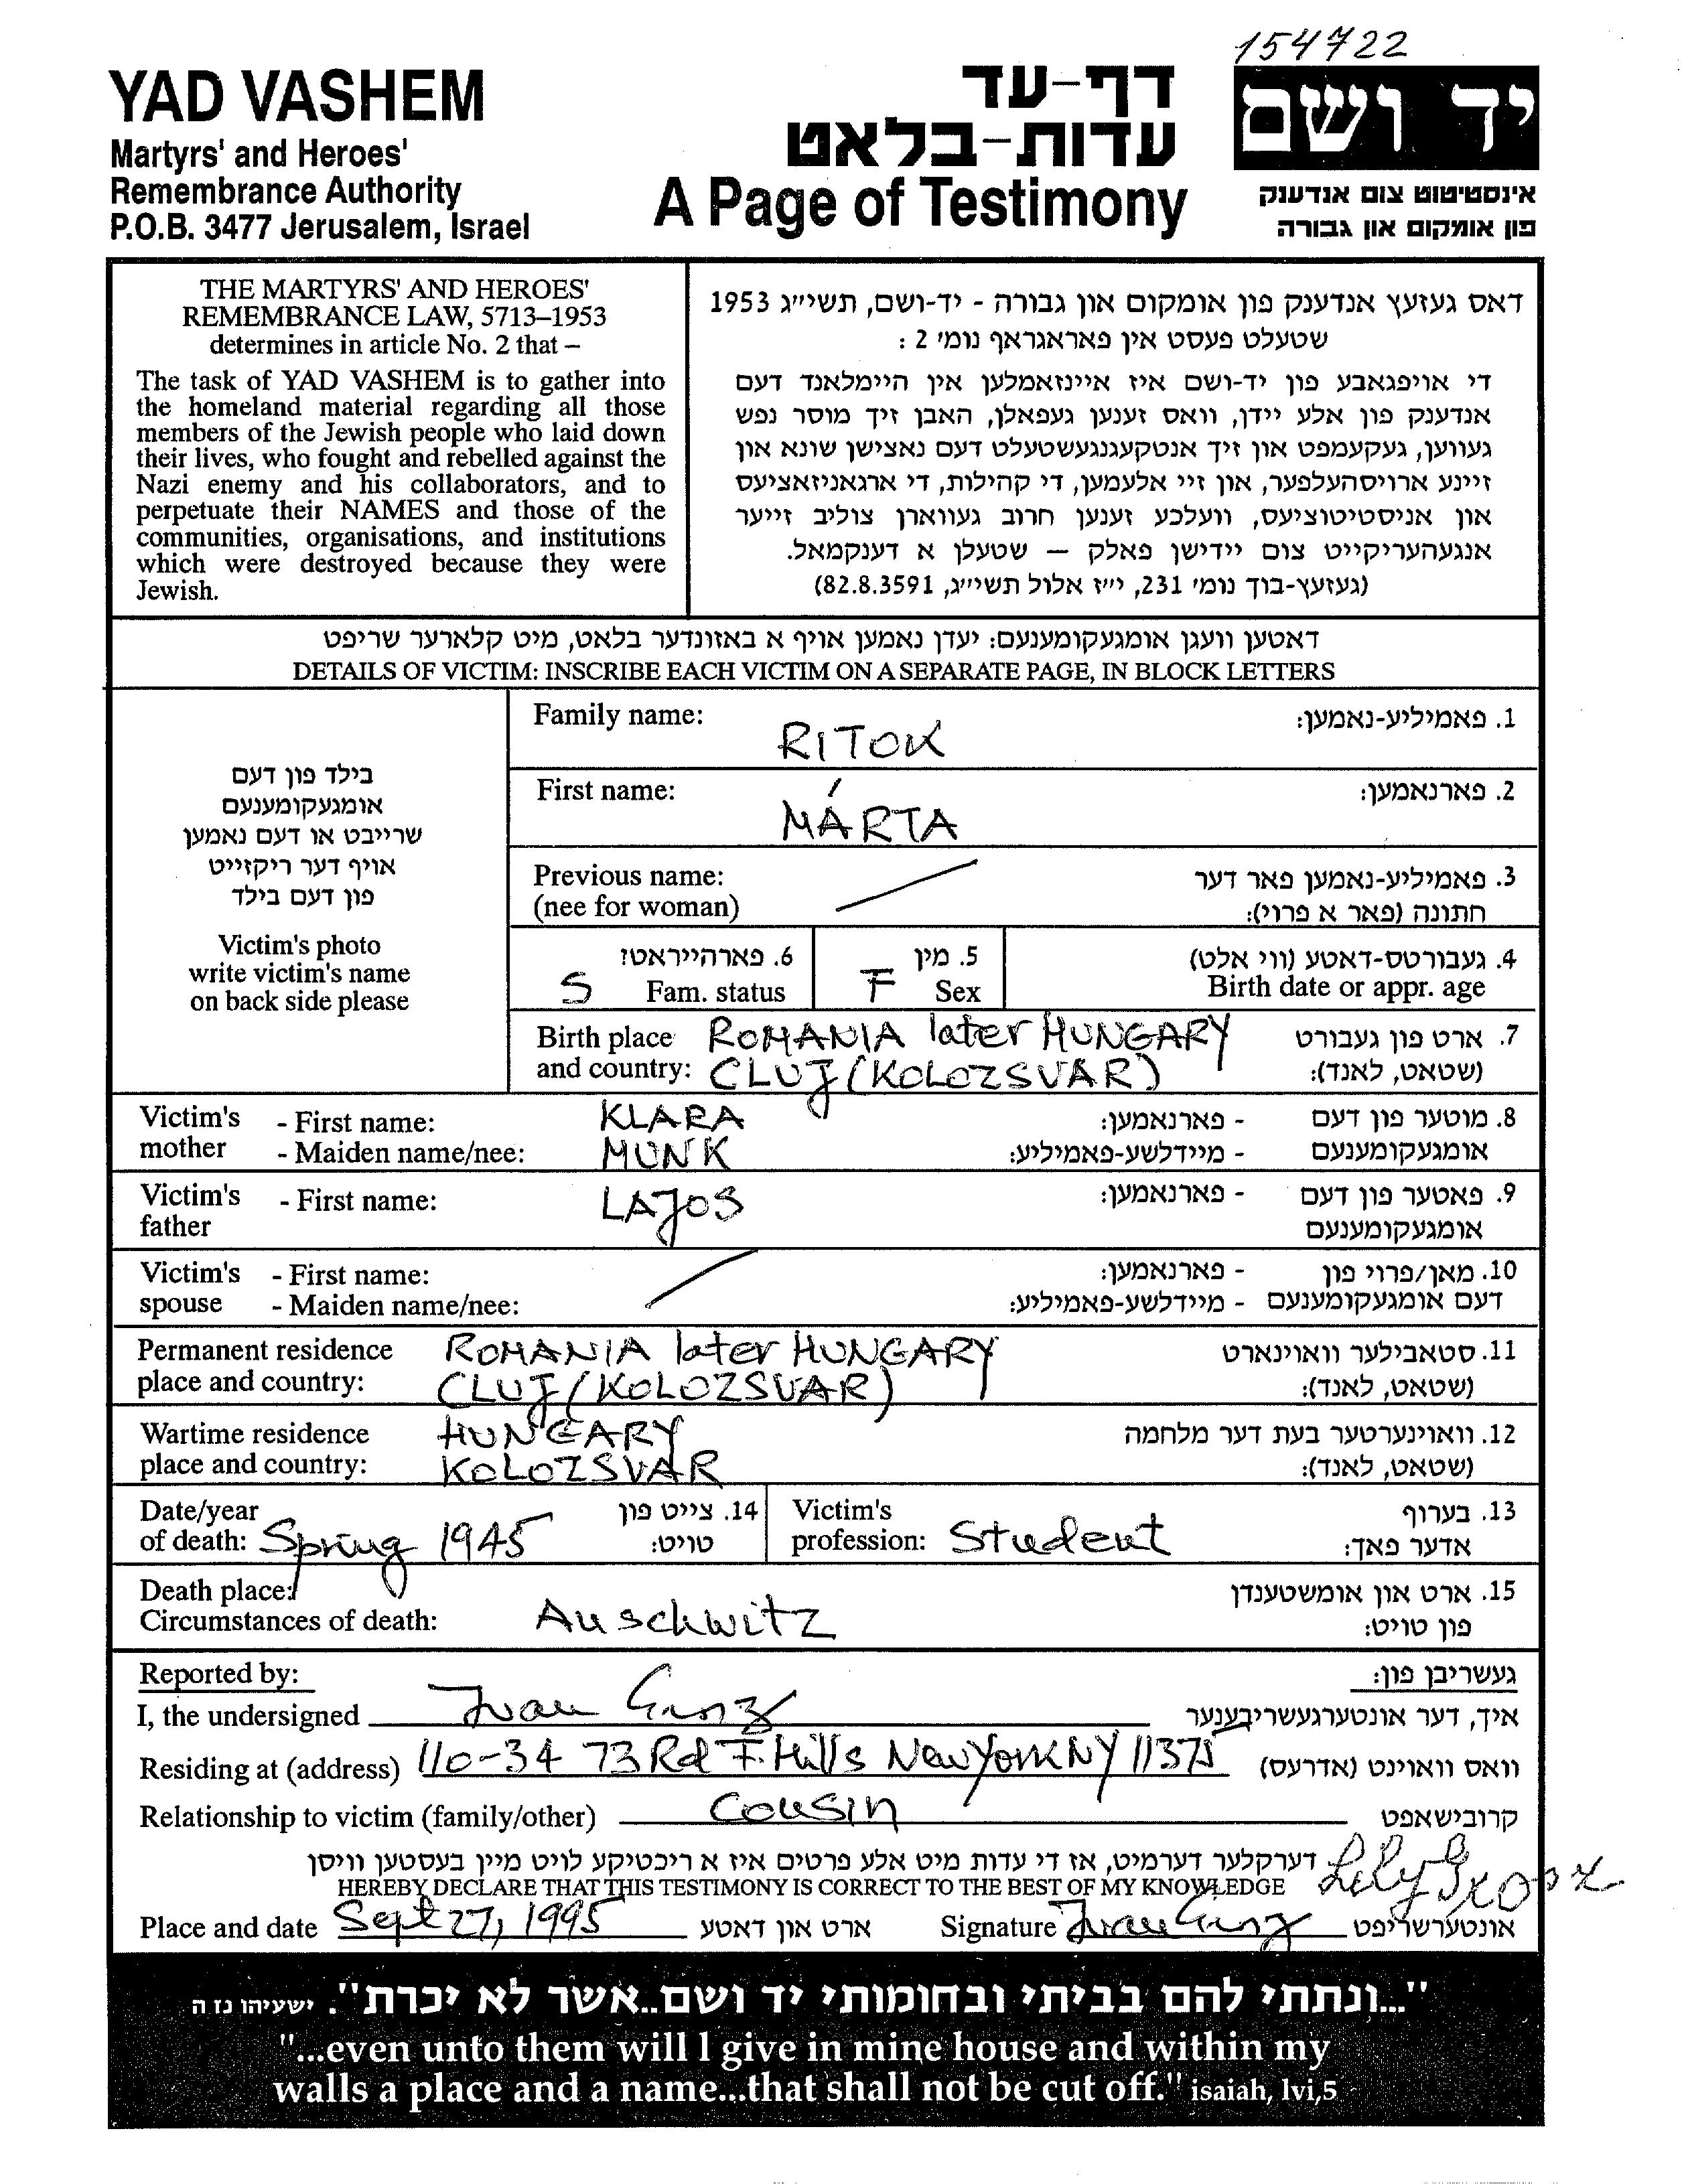 154722
YAD VASHEM
Martyrs' and Heroes'
Remembrance Authority
P.O.B. 3477 Jerusalem, Israel
דף-עד
עדות-בלאט
A Page of Testimony
יד ושם
אינסטיטוט צום אנדענק
פון אומקום און גבורה
THE MARTYRS' AND HEROES'
REMEMBRANCE LAW, 5713–1953
determines in article No. 2 that –
The task of YAD VASHEM is to gather into
the homeland material regarding all those
members of the Jewish people who laid down
their lives, who fought and rebelled against the
Nazi enemy and his collaborators, and to
perpetuate their NAMES and those of the
communities, organisations, and institutions
which were destroyed because they were
Jewish.
דאס געזעץ אנדענק פון אומקום און גבורה - יד-ושם, תשי״ג 1953
שטעלט פעסט אין פאראגראף נומ׳ 2 :
די אויפגאבע פון יד-ושם איז איינזאמלען אין היימלאנד דעם
אנדענק פון אלע יידן, וואס זענען געפאלן, האבן זיך מוסר נפש
געווען, געקעמפט און זיך אנטקעגנגעשטעלט דעם נאצישן שונא און
זיינע ארויסהעלפער, און זיי אלעמען, די קהילות, די ארגאניזאציעס
און אניסטיטוציעס, וועלכע זענען חרוב געווארן צוליב זייער
אנגעהעריקייט צום יידישן פאלק — שטעלן א דענקמאל.
(געזעץ-בוך נומ׳ 231, י״ז אלול תשי״ג, 82.8.3591)
דאטען וועגן אומגעקומענעם: יעדן נאמען אויף א באזונדער בלאט, מיט קלארער שריפט
DETAILS OF VICTIM: INSCRIBE EACH VICTIM ON A SEPARATE PAGE, IN BLOCK LETTERS
בילד פון דעם
אומגעקומענעם
שרייבט או דעם נאמען
אויף דער ריקזייט
פון דעם בילד
Victim's photo
write victim's name
on back side please
Family name: RITOK 1. פאמיליע-נאמען:
First name: MÁRTA 2. פארנאמען:
Previous name: 3. פאמיליע-נאמען פאר דער
(nee for woman) חתונה (פאר א פרוי):
6. פארהייראט? 5. מין 4. געבורטס-דאטע (ווי אלט)
S Fam. status F Sex Birth date or appr. age
Birth place ROMANIA later HUNGARY 7. ארט פון געבורט
and country: CLUJ (KOLOZSVÁR) (שטאט, לאנד):
Victim's - First name: KLARA - פארנאמען: 8. מוטער פון דעם
mother - Maiden name/nee: MUNK - מיידלשע-פאמיליע: אומגעקומענעם
Victim's - First name: LAJOS - פארנאמען: 9. פאטער פון דעם
father אומגעקומענעם
Victim's - First name: - פארנאמען: 10. מאן/פרוי פון
spouse - Maiden name/nee: - מיידלשע-פאמיליע: דעם אומגעקומענעם
Permanent residence ROMANIA later HUNGARY 11. סטאבילער וואוינארט
place and country: CLUJ (KOLOZSVAR) (שטאט, לאנד):
Wartime residence HUNGARY 12. וואוינערטער בעת דער מלחמה
place and country: KOLOZSVAR (שטאט, לאנד):
Date/year 14. צייט פון Victim's 13. בערוף
of death: Spring 1945 טויט: profession: Student אדער פאך:
Death place: 15. ארט און אומשטענדן
Circumstances of death: Auschwitz פון טויט:
Reported by: געשריבן פון:
I, the undersigned Ivan Ganz איך, דער אונטערגעשריבענער
Residing at (address) 110-34 73 Rd F. Hills New York NY 11375 וואס וואוינט (אדרעס)
Relationship to victim (family/other) Cousin קרובישאפט
דערקלער דערמיט, אז די עדות מיט אלע פרטים איז א ריכטיקע לויט מיין בעסטען וויסן
HEREBY DECLARE THAT THIS TESTIMONY IS CORRECT TO THE BEST OF MY KNOWLEDGE Lily
Place and date Sept 27, 1995 ארט און דאטע Signature Ivan Ganz אונטערשריפט
"...ונתתי להם בביתי ובחומותי יד ושם..אשר לא יכרת". ישעיהו נז ה
"...even unto them will I give in mine house and within my
walls a place and a name...that shall not be cut off." isaiah, lvi,5